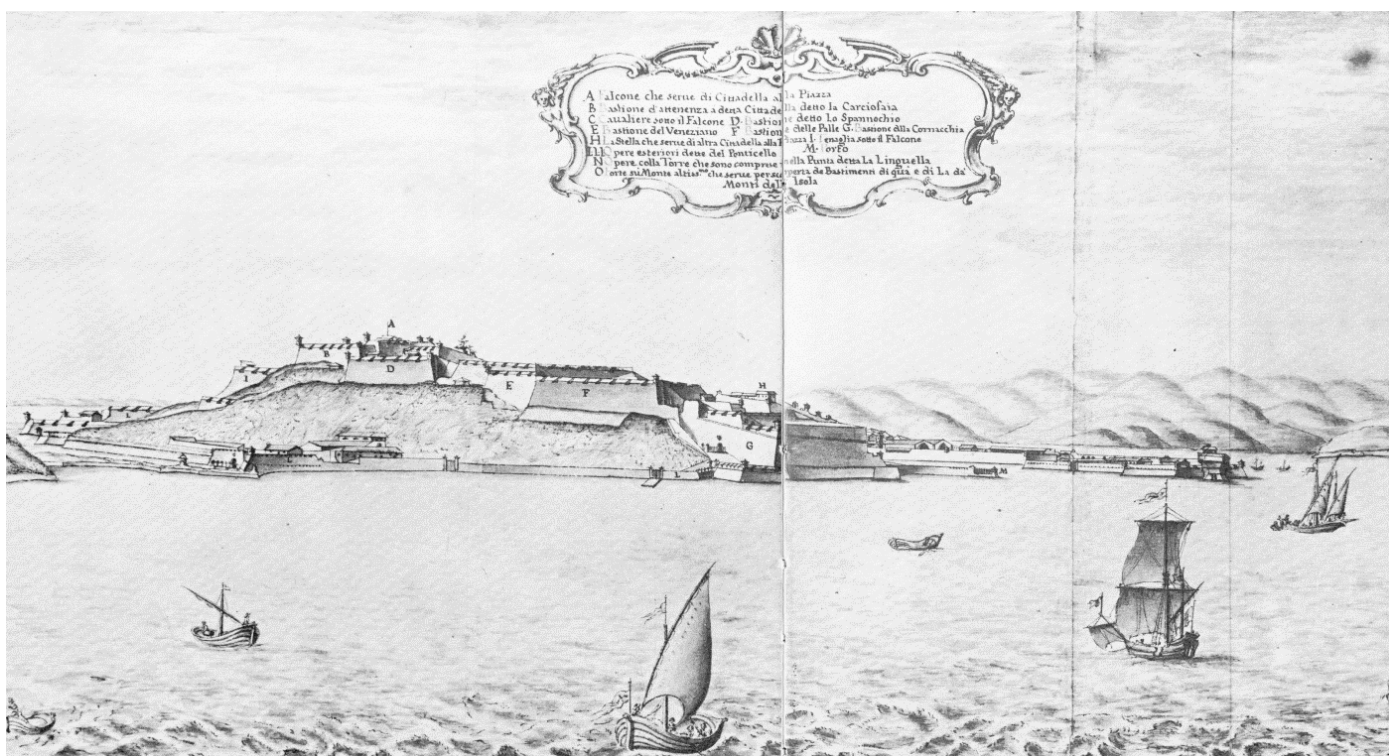 A Falcone che serue di Cittadella alla Piazza
B Bastione d'attenenza a detta Cittadella detto la Carciofaia
C Caualiere sotto il Falcone D. Bastione detto Lo Spannochio
E Bastione del Veneziano F Bastione delle Palle G. Bastione dlla Cornacchia
H La Stella che serue di altra Citadella alla Piazza I. Tenaglia sotto il Falcone
Opere esteriori dette del Ponticello M.
N Opere colla Torre che sono comprese nella Punta detta La Linguella
O Forte sù Monte altiss.mo che serue per de Bastimenti di quà e di La da'
Monti dell' Isola
A
B
D
I
E
F
H
G
L
L
M